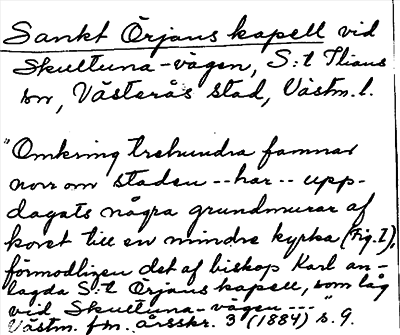 Sankt Örjans kapell vid
Skultuna-vägen, S:t Ilians
sn, Västerås stad, Västm. l.
"Omkring trehundra famnar
norr om staden -- har -- upp-
dagats några grundmurar af
koret till en mindre kyrka (Fig. I),
förmodligen det af biskop Karl an-
lagda S:t Örjans kapell, som låg
vid Skultuna-vägen ---"
Västm. fm. årsskr. 3 (1884) s. 9.